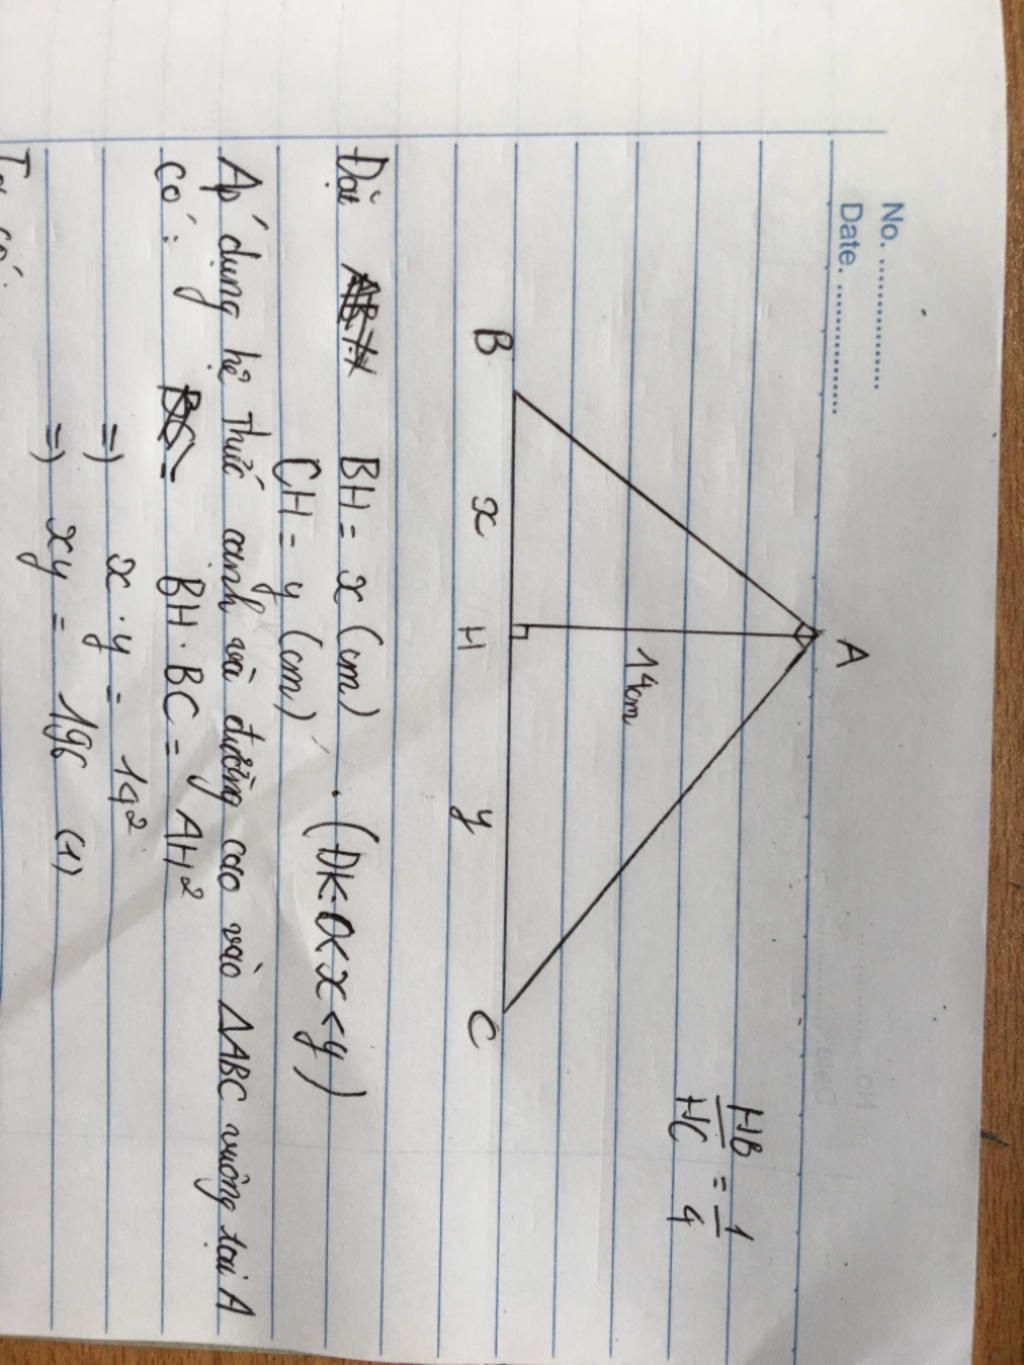 No. ..................
Date. ..................
A
HB/HC = 1/4
14cm
B x H y C
Đặt BH = x (cm)
CH = y (cm) . (ĐK: 0 < x < y)
Áp dụng hệ thức cạnh và đường cao vào ΔABC vuông tại A
có: BH . BC = AH²
=) x . y = 14²
=) xy = 196 (1)
Ta có: